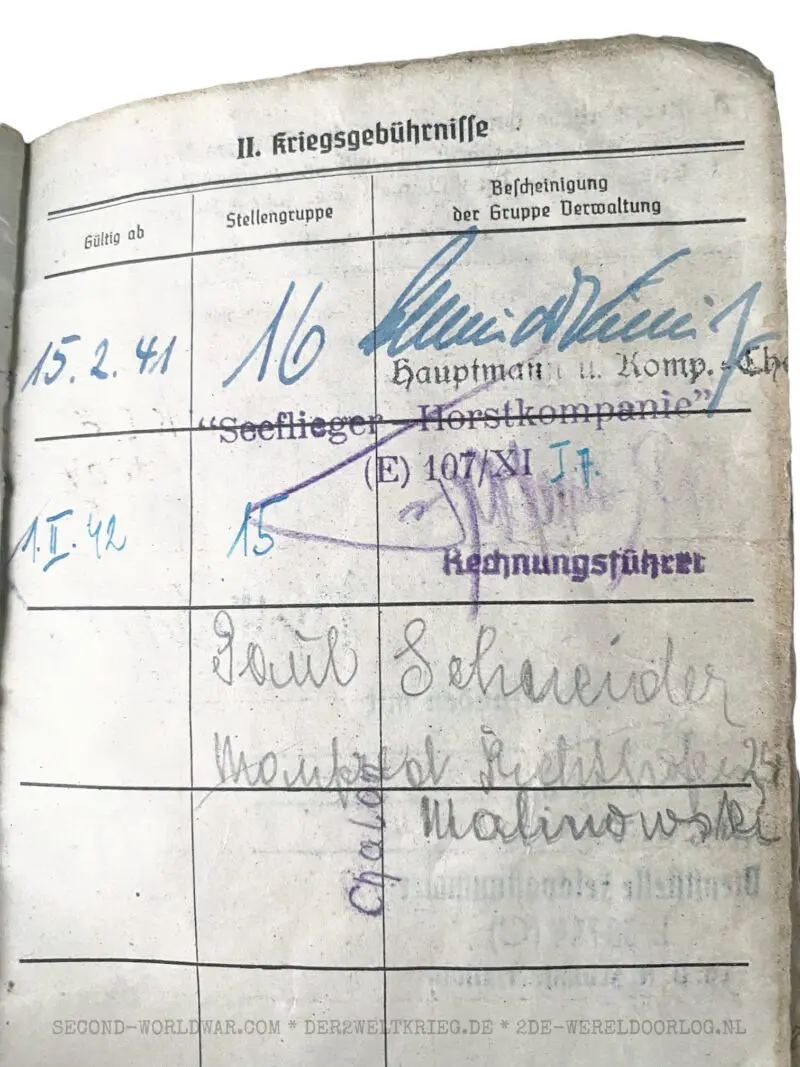 II. Kriegsgebührnisse
Gültig ab
Stellengruppe
Bescheinigung
der Gruppe Verwaltung
15. 2. 41
16
Hauptmann u. Komp.-Che
"Seeflieger - Horstkompanie"
(E) 107/XI
1. II. 42
15
Rechnungsführer
Paul Schneider
Manfred
Malinowski
Chalon
SECOND-WORLDWAR.COM * DER2WELTKRIEG.DE * 2DE-WERELDOORLOG.NL